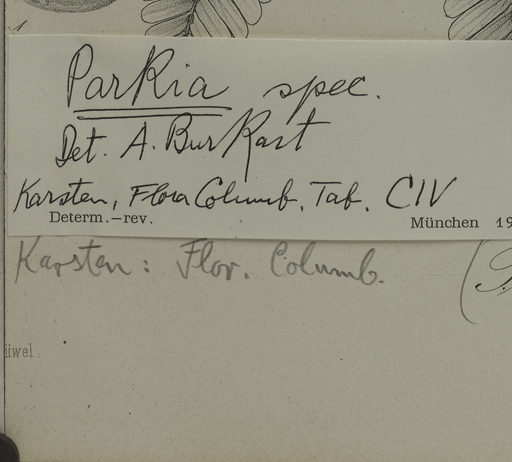 Parkia spec.
Det. A. Burkart
Karsten, Flora Columb. Taf. CIV
Determ.-rev. München 19
Karsten: Flor. Columb.
üwel.